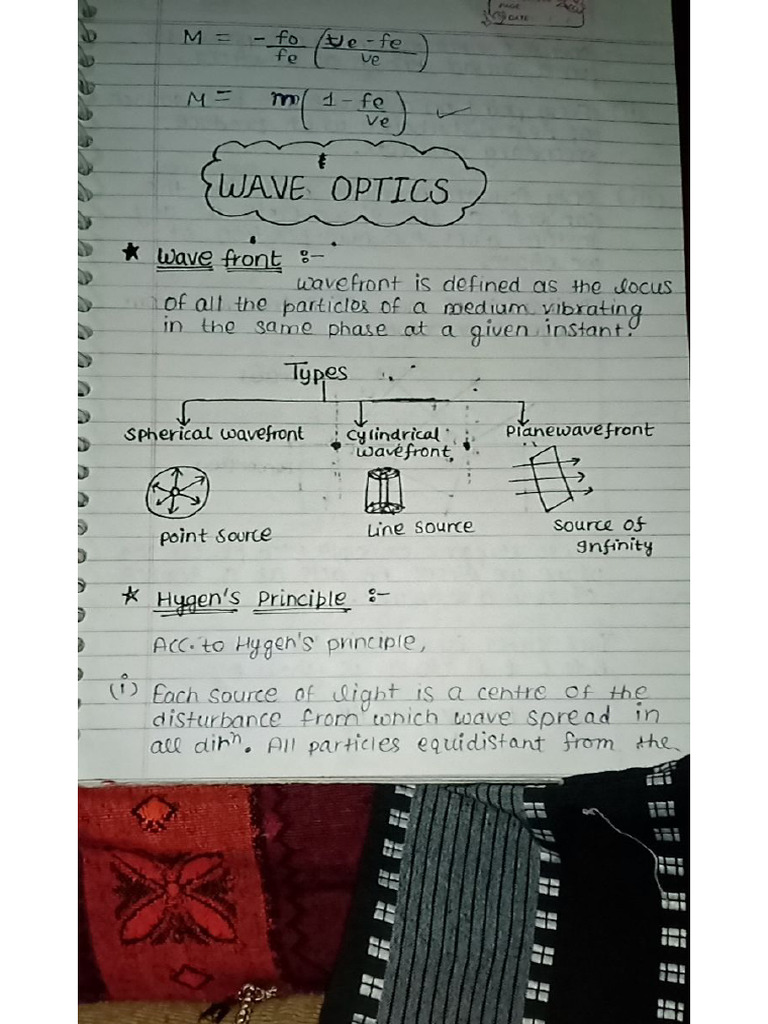 DATE
M = - fo/fe ( ve - fe / ve )
M = m ( 1 - fe/ve )
WAVE OPTICS
★ Wave front :-
wavefront is defined as the locus
of all the particles of a medium vibrating
in the same phase at a given instant.
Types
Spherical wavefront Cylindrical wavefront. Planewavefront
point source Line source source of Infinity
★ Hygen's Principle :-
Acc. to Hygen's principle,
(i) Each source of light is a centre of the
disturbance from which wave spread in
all dirⁿ. All particles equidistant from the